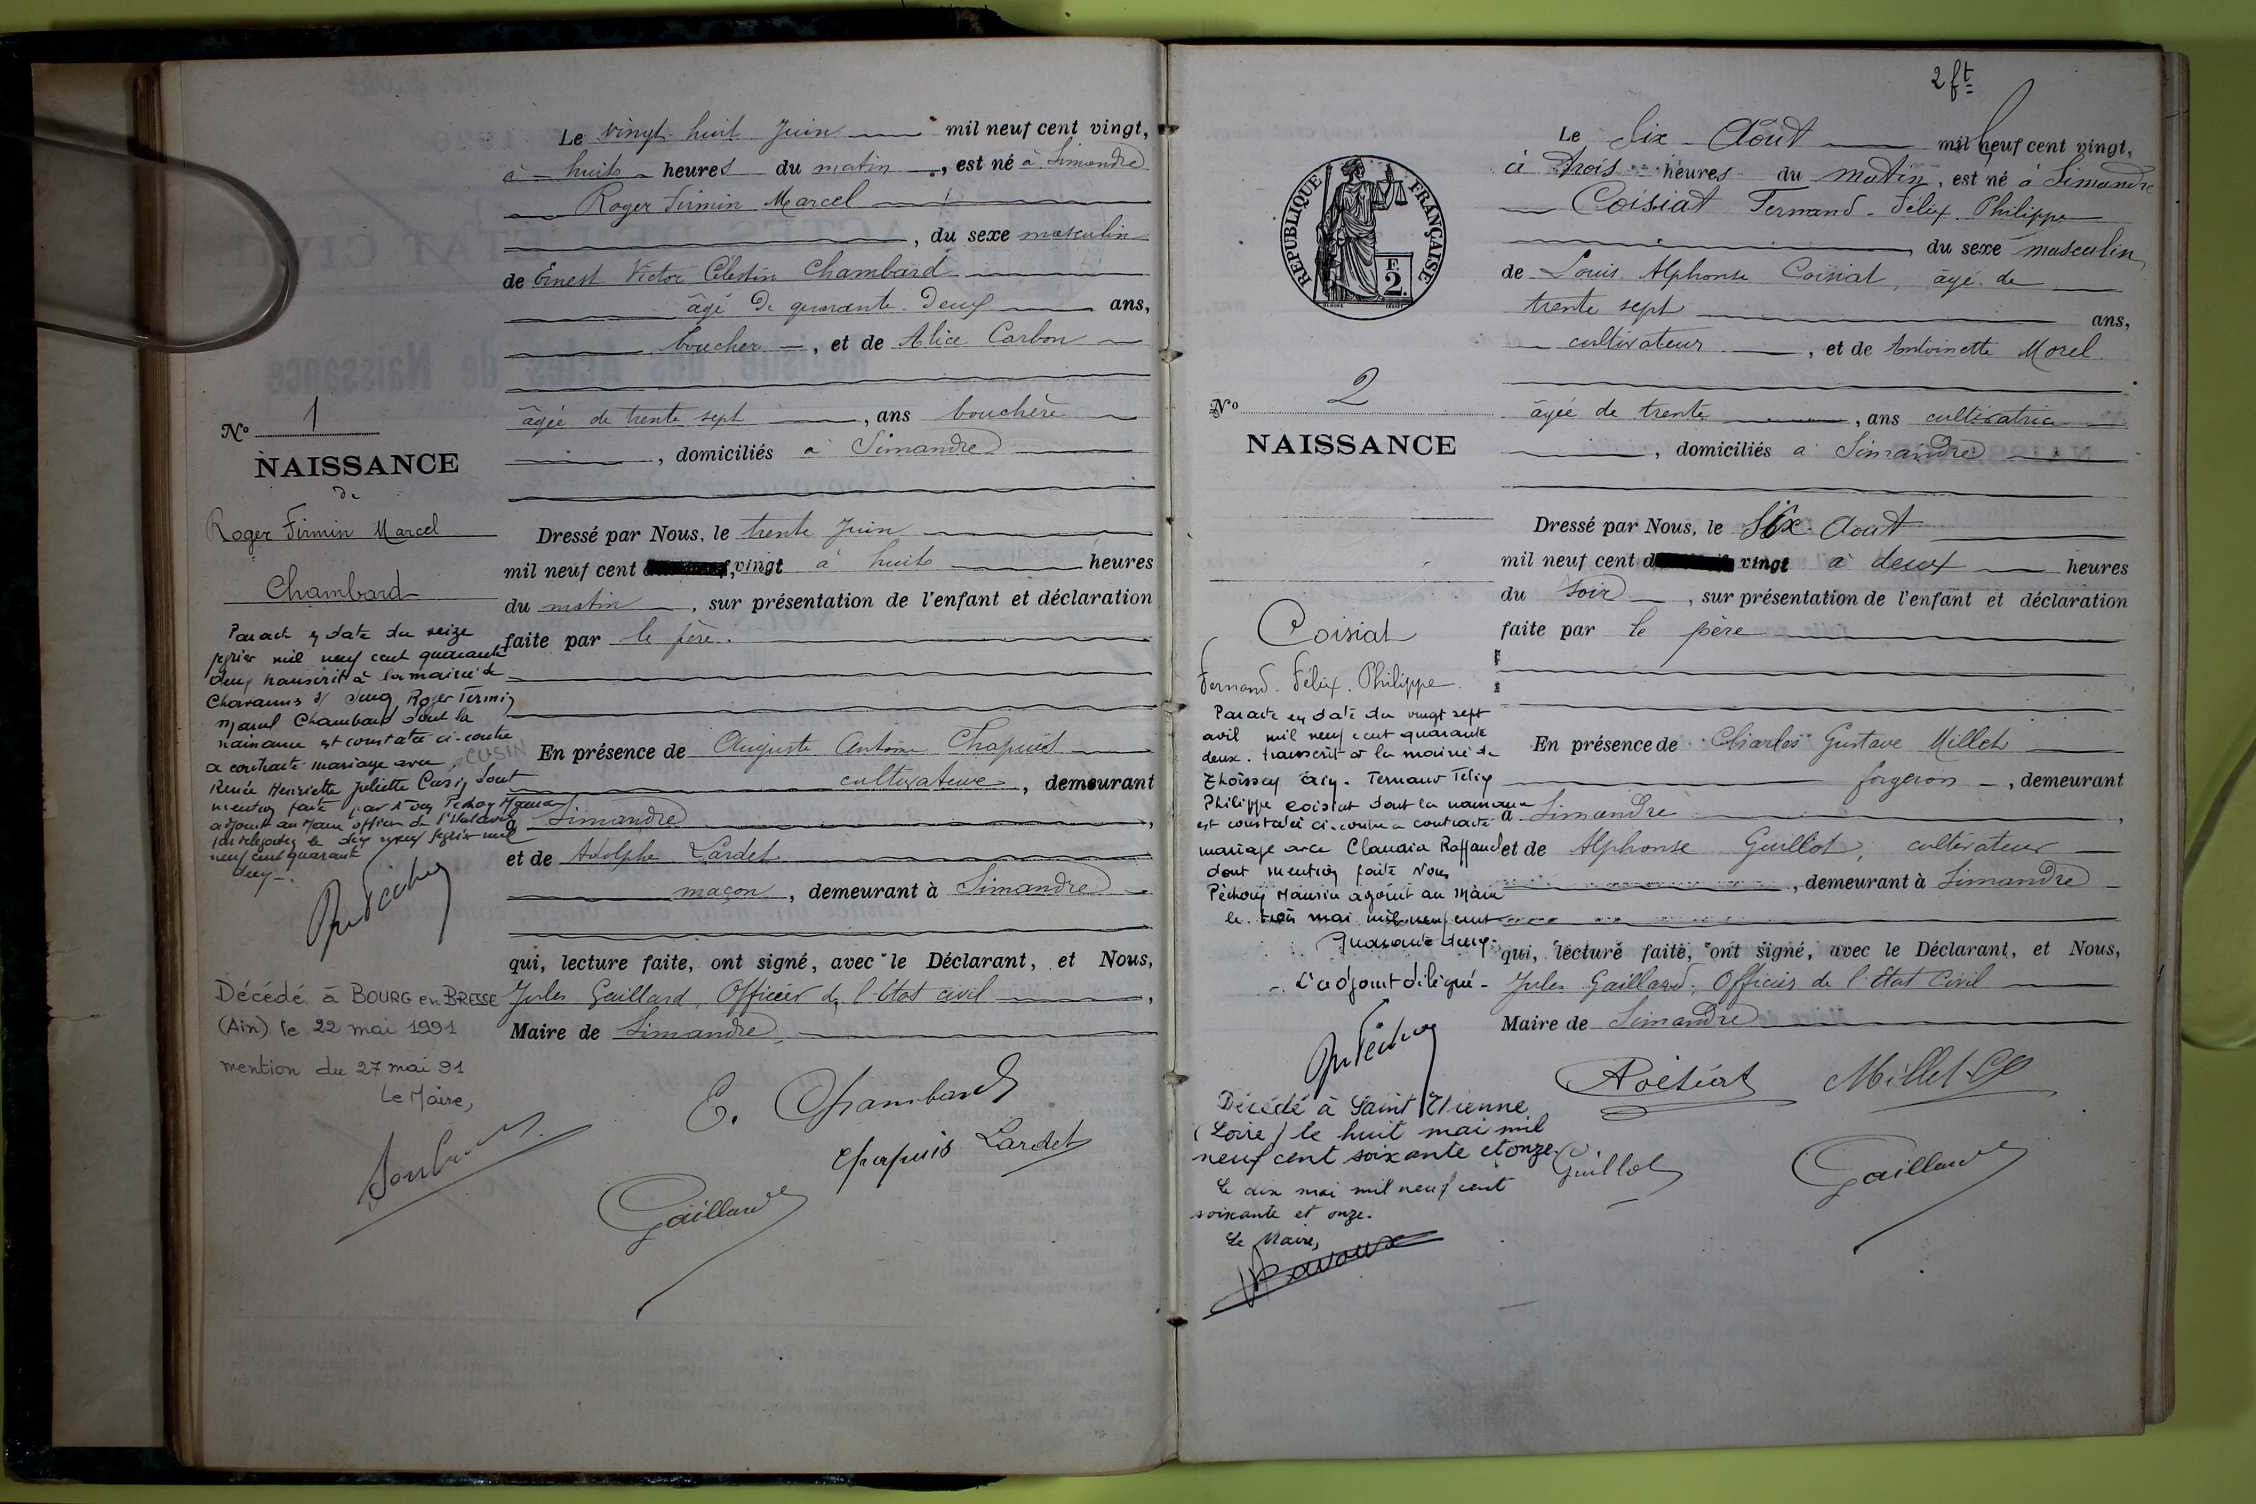 Le vingt huit Juin mil neuf cent vingt,
à huit heures du matin, est né à Simandre
Roger Firmin Marcel
, du sexe masculin
de Ernest Victor Célestin Chambard
âgé de quarante deux ans,
boucher, et de Alice Carbon
âgée de trente sept, ans bouchère
, domiciliés à Simandre
Dressé par Nous, le trente Juin
mil neuf cent vingt à huit heures
du matin, sur présentation de l'enfant et déclaration
faite par le père.
En présence de Auguste Antoine Chapuis
cultivateur, demeurant
à Simandre,
et de Adolphe Lardet
maçon, demeurant à Simandre
qui, lecture faite, ont signé, avec le Déclarant, et Nous,
Jules Gaillard, Officier de l'Etat civil,
Maire de Simandre
E. Chambard
Chapuis Lardet
Gaillard
No 1
NAISSANCE
de
Roger Firmin Marcel
Chambard
Par acte en date du seize
février mil neuf cent quarante
deux transcrit à la mairie de
Chavannes s/ Suran Roger Firmin
Marcel Chambard dont la
naissance est constatée ci-contre
a contracté mariage avec CUSIN
Renée Henriette Juliette Cusin dont
mention faite par Nous Pechoux Maurice
adjoint au Maire officier de l'état civil
par délégation le dix neuf février mil
neuf cent quarante
deux.
Décédé à BOURG en BRESSE
(Ain) le 22 mai 1991
mention du 27 mai 91
Le Maire,
2 ft
Le Six Août mil neuf cent vingt,
à trois heures du matin, est né à Simandre
Coisiat Fernand. Félix. Philippe
du sexe masculin
de Louis Alphonse Coisiat, âgé de
trente sept ans,
cultivateur, et de Antoinette Morel
âgée de trente, ans cultivatrice
, domiciliés à Simandre
Dressé par Nous, le Six Aout
mil neuf cent vingt à deux heures
du soir, sur présentation de l'enfant et déclaration
faite par le père
En présence de Charles Gustave Millet
forgeron, demeurant
à Simandre,
et de Alphonse Guillot, cultivateur
, demeurant à Simandre
qui, lecture faite, ont signé, avec le Déclarant, et Nous,
Jules Gaillard, Officier de l'Etat Civil
Maire de Simandre
Millet
Guillot
Gaillard
RÉPUBLIQUE FRANÇAISE
F.
2.
No 2
NAISSANCE
Coisiat
Fernand. Félix. Philippe.
Par acte en date du vingt sept
avril mil neuf cent quarante
deux. transcrit à la mairie de
Thoissey Ain. Fernand Félix
Philippe Coisiat dont la naissance
est constatée ci-contre a contracté
mariage avec Claudia
dont mention faite Nous
Péchoux Maurice adjoint au Maire
le trois mai mil neuf cent
Quarante deux.
L'adjoint délégué
Décédé à Saint Etienne
(Loire) le huit mai mil
neuf cent soixante et onze.
Le dix mai mil neuf cent
soixante et onze.
Le Maire,